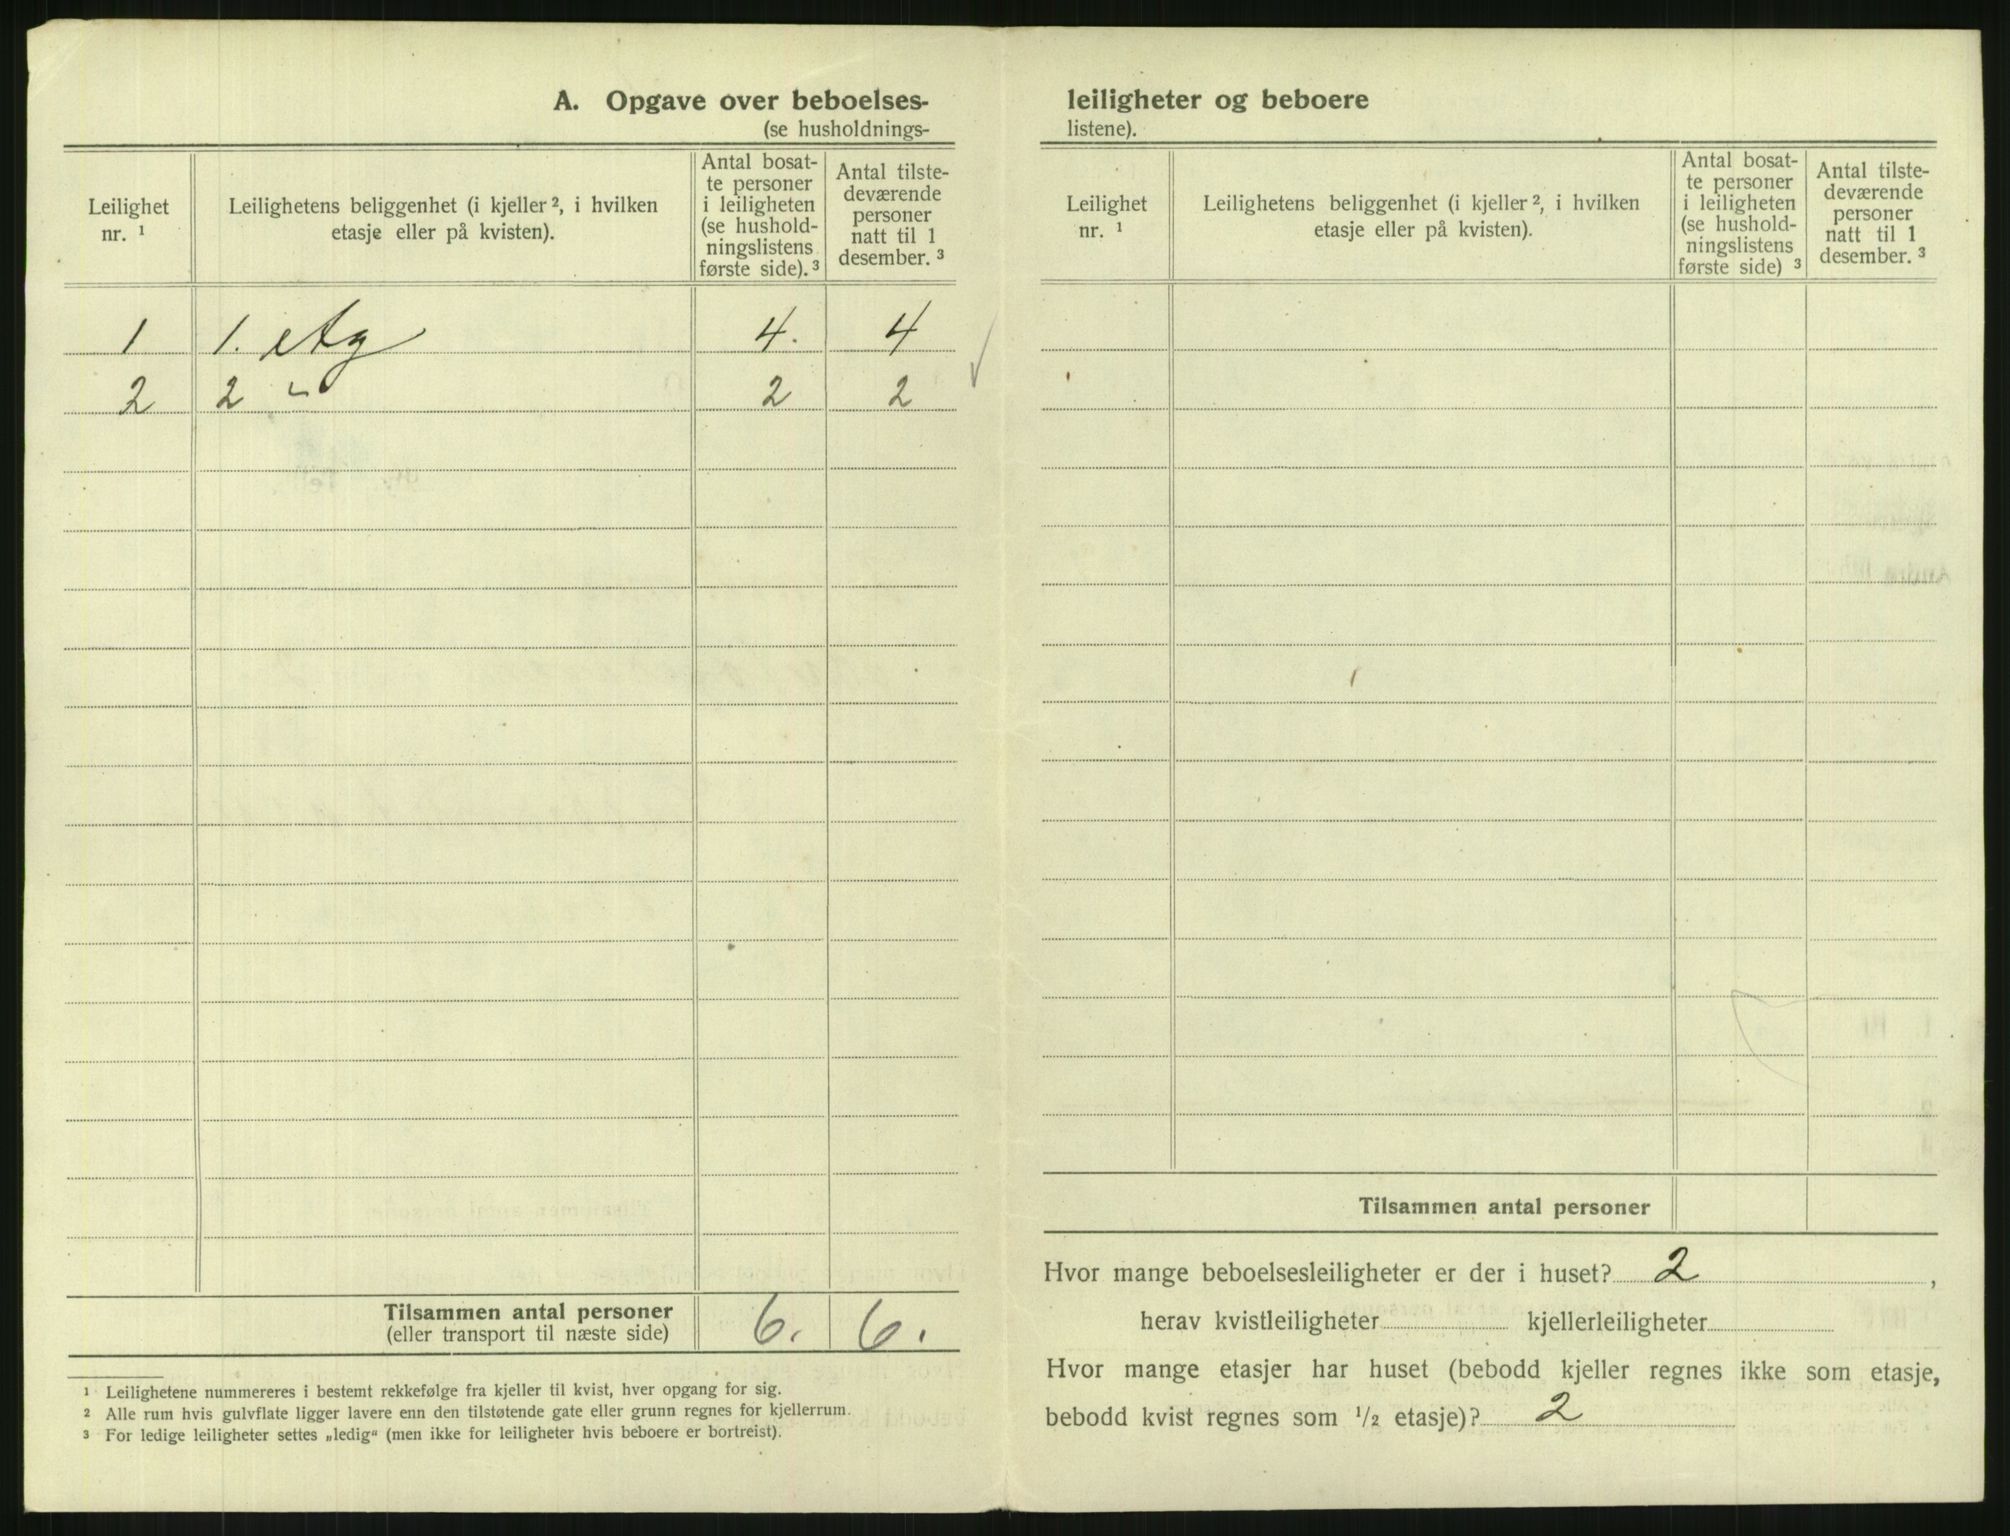 A. Opgave over beboelses-
(se husholdnings-
Leilighet
nr. ¹
Leilighetens beliggenhet (i kjeller ², i hvilken
etasje eller på kvisten).
Antal bosat-
te personer
i leiligheten
(se hushold-
ningslistens
første side). ³
Antal tilste-
deværende
personer
natt til 1
desember. ³
1 1. etg 4. 4
2 2 " 2 2
Tilsammen antal personer
(eller transport til næste side)
6. 6.
¹ Leilighetene nummereres i bestemt rekkefølge fra kjeller til kvist, hver opgang for sig.
² Alle rum hvis gulvflate ligger lavere enn den tilstøtende gate eller grunn regnes for kjellerrum.
³ For ledige leiligheter settes „ledig" (men ikke for leiligheter hvis beboere er bortreist).
leiligheter og beboere
listene).
Leilighet
nr. ¹
Leilighetens beliggenhet (i kjeller ², i hvilken
etasje eller på kvisten).
Antal bosat-
te personer
i leiligheten
(se hushold-
ningslistens
første side) ³
Antal tilste-
deværende
personer
natt til 1
desember. ³
Tilsammen antal personer
Hvor mange beboelsesleiligheter er der i huset? 2 ,
herav kvistleiligheter kjellerleiligheter
Hvor mange etasjer har huset (bebodd kjeller regnes ikke som etasje,
bebodd kvist regnes som ½ etasje)? 2